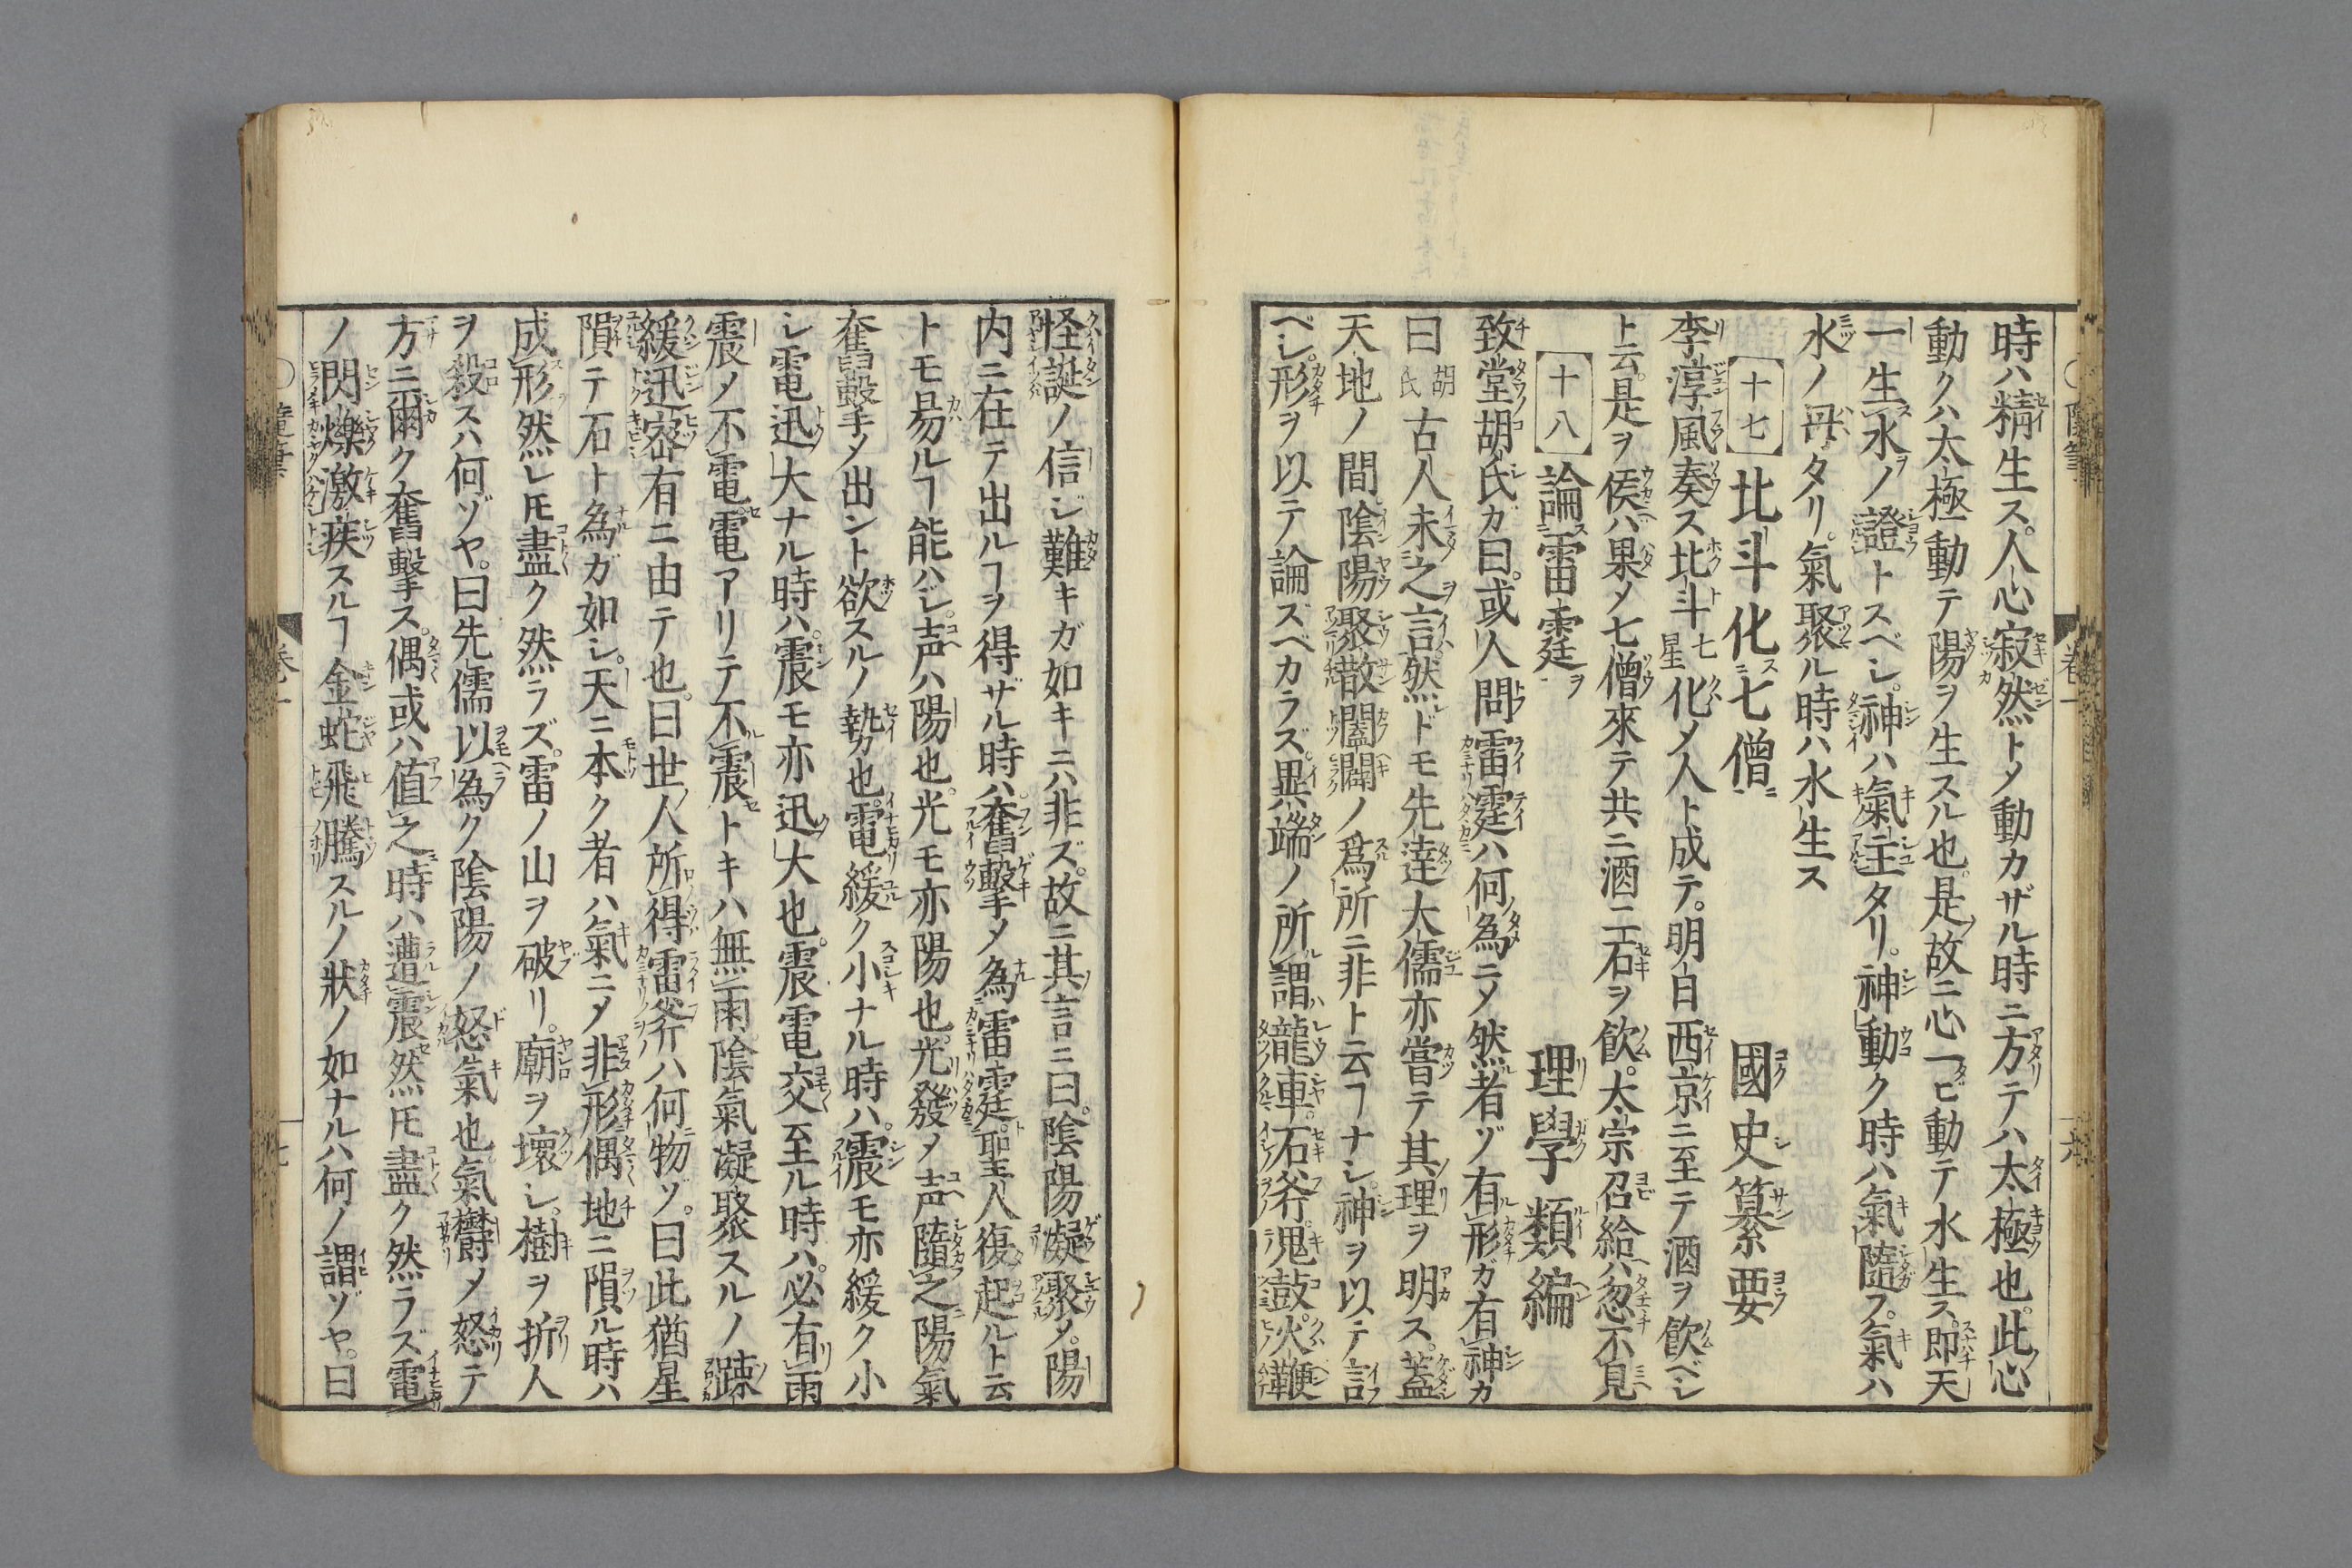 時ハ精生ス。人心寂然トメ動カザル時ニ方テハ太極也。此心
動クハ太極動テ陽ヲ生スル也。是故ニ心一ビ動テ水生ス。即天
一生水ノ證トスベシ。神ハ氣主タリ。神動ク時ハ氣隨フ。氣ハ
水ノ母タリ。氣聚ル時ハ水生ス
十七 北斗化七僧 國史纂要
李淳風奏ス北斗七星化メ人ト成テ。明日西京ニ至テ酒ヲ飲ベシ
ト云。是ヲ侯ハ果メ七僧來テ共ニ酒二石ヲ飲。太宗召給ハ忽不見
十八 論雷霆ヲ 理學類編
致堂胡氏ガ曰。或人問雷霆ハ何為ニメ然者ゾ有形ガ有神カ
曰胡氏古人未之言然ドモ先達大儒亦嘗テ其理ヲ明ス。蓋
天地ノ間陰陽聚散闔闢ノ為所ニ非ト云ヿナシ。神ヲ以テ言
ベシ。形ヲ以テ論ズベカラズ。異端ノ所謂龍車。石斧。鬼鼓。火鞭
怪誕ノ信ジ難キガ如キニハ非ズ。故ニ其言ニ曰。陰陽凝聚メ。陽
内ニ在テ出ルヿヲ得ザル時ハ。奮擊メ為雷霆。聖人復起ルト云
トモ易ルヿ能ハジ。声ハ陽也。光モ亦陽也。光發メ声隨之陽氣
奮擊メ出ント欲スルノ勢也。電緩ク小ナル時ハ。震モ亦緩ク小
シ電迅大ナル時ハ。震モ亦迅大也。震電交至ル時ハ。必有雨
震ノ不電。電アリテ不震トキハ無雨陰氣凝聚スルノ踈
緩迅密有ニ由テ也。曰世人所得雷斧ハ何物ゾ。曰此猶星
隕テ石ト為ガ如シ。天ニ本ク者ハ氣ニメ非形偶地ニ隕ル時ハ
成形然レ𪜈盡ク然ラズ。雷ノ山ヲ破リ。廟ヲ壞シ。樹ヲ折人
ヲ殺スハ何ゾヤ。曰先儒以為ク陰陽ノ怒氣也氣欝メ怒テ
方ニ爾ク奮擊ス。偶或ハ値之時ハ遭震然𪜈盡ク然ラズ電
ノ閃爍激疾スルヿ金蛇飛騰スルノ狀ノ如ナルハ何ノ謂ゾヤ。曰
卷一